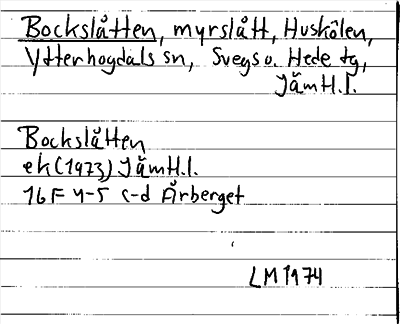 Bockslåtten, myrslått, Huskölen,
Ytterhogdals sn, Svegs o. Hede tg,
Jämtl.l.
Bockslåtten
ek (1973) Jämtl.l.
16F 4-5 c-d Årberget
LM 1974